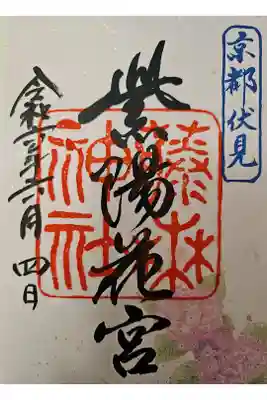 京都伏見
紫陽花宮
藤森
神社
令和六年六月四日